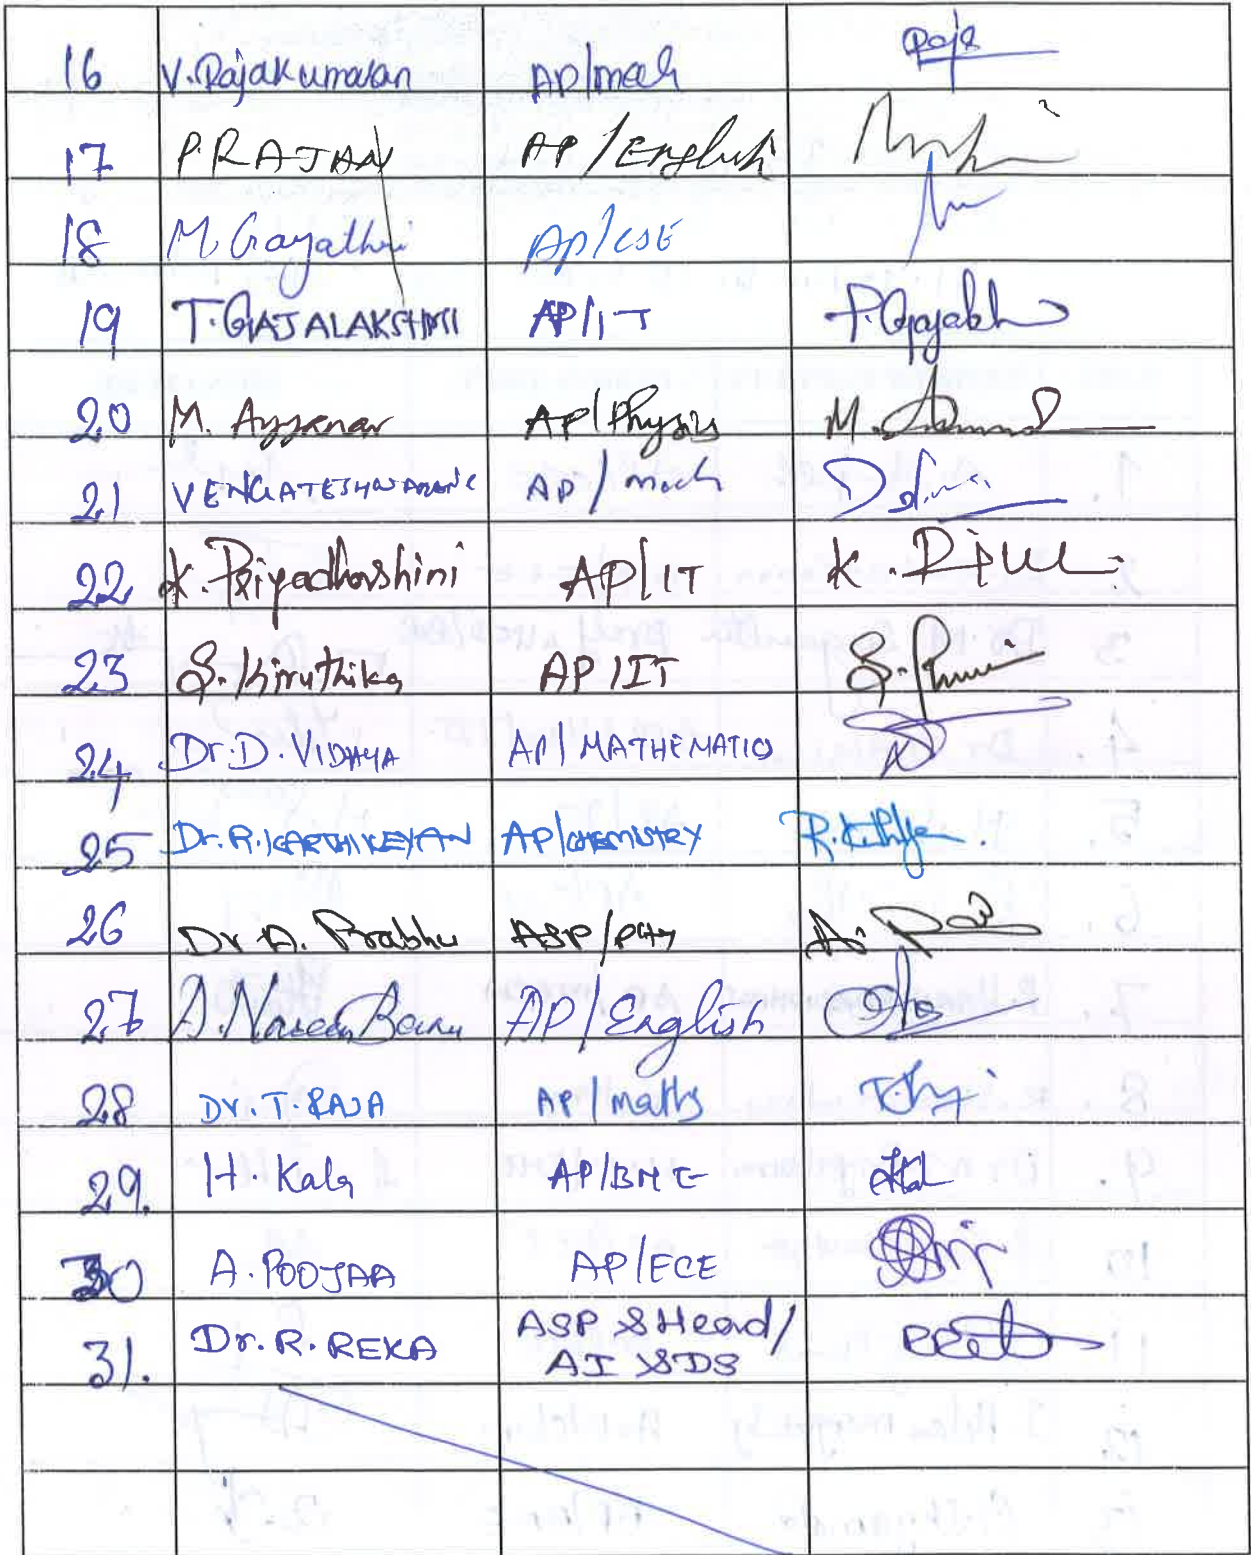 16 V. Rajakumaran AP/mech Raja
17 P. RAJAN AP/English
18 M Gayathri AP/CSE
19 T. GAJALAKSHMI AP/IT T. Gajalak
20 M. Ayyanar AP/Physics M.
21 VENGATESHWARAN C AP/mech
22 K. Priyadharshini AP/IT K.
23 S. Kiruthika AP/IT S.
24 Dr. D. VIDHYA AP/MATHEMATICS
25 Dr. R. KARTHIKEYAN AP/CHEMISTRY R.
26 Dr A. Prabhu ASP/PHY A.
27 A. Naseem Banu AP/English
28 Dr. T. RAJA AP/maths
29. H. Kala AP/BME
30 A. POOJAA AP/ECE
31. Dr. R. REKA ASP & Head/
AI & DS